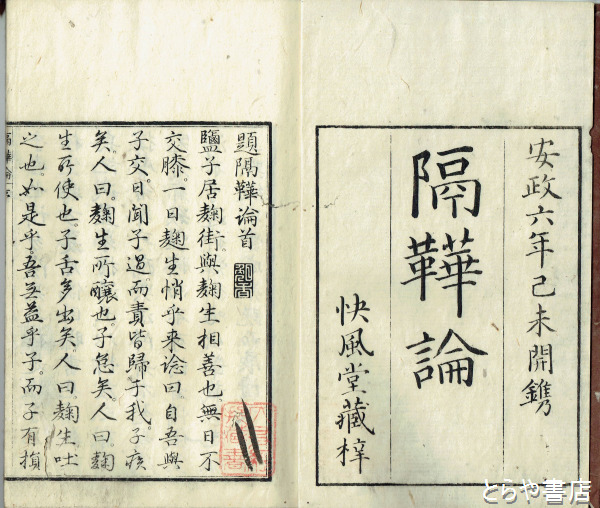 安政六年己未開鐫
隔鞾論
快風堂藏梓
題隔鞾論首
鹽子居麹街與麹生相善也無日不
交膝。一日麹生悄乎来諗曰自吾與
子交日聞子過而責皆歸于我子疾
矣。人曰。麹生所釀也。子怠矣。人曰麹
生所使也。子舌多出矣。人曰。麹生吐
之也。如是乎吾無益乎子。而子有損
とらや書店